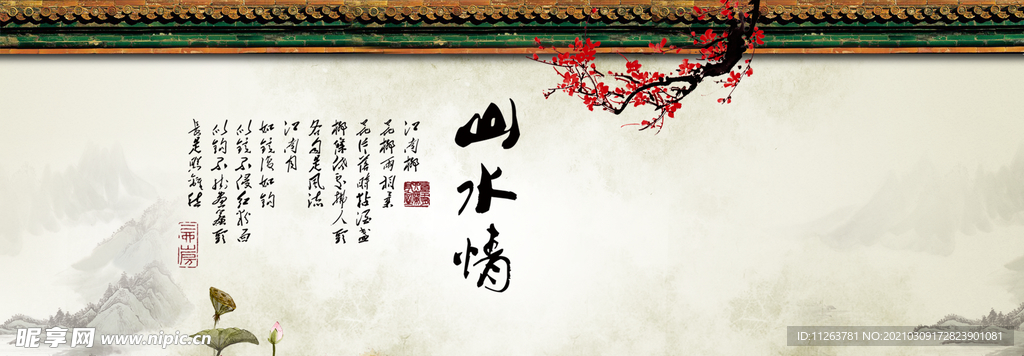 山水情
江南柳
花柳两相柔
花片落时粘酒盏
柳条低处拂人头
各自是风流
江南月
如镜复如钩
似镜不侵红粉面
似钩不挂画帘头
长是照离愁
昵享网 www.nipic.cn
ID:11263781 NO:20210309172823901081